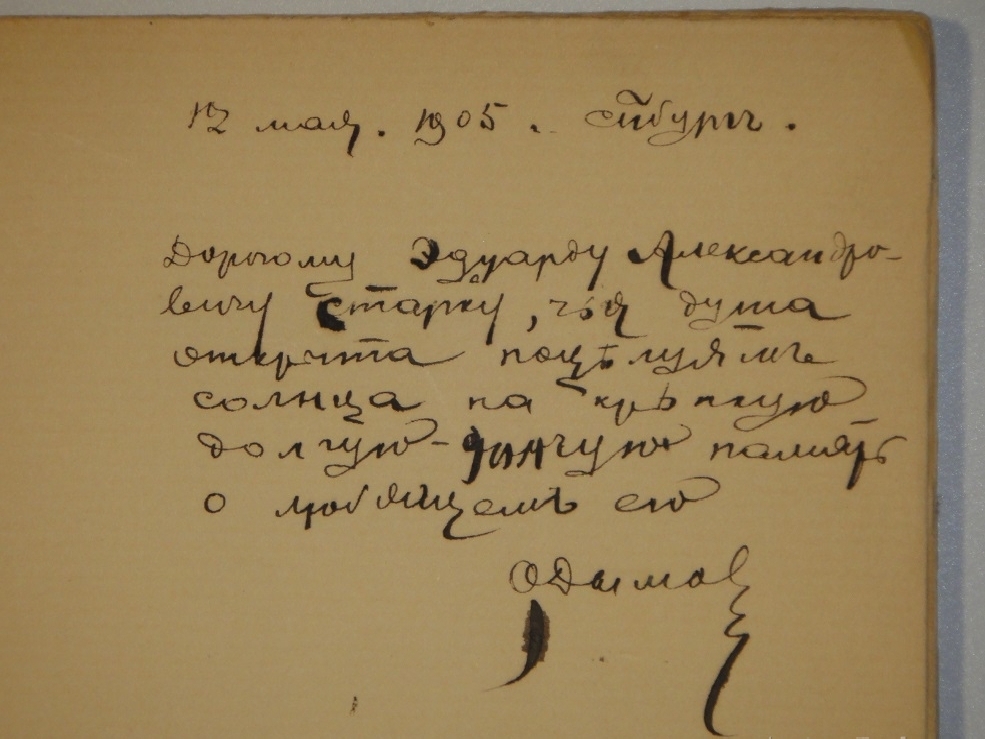 12 мая. 1905. СПбургъ.
Дорогому Эдуарду Александро-
вичу Старку, чья душа
открыта поцѣлуямъ
солнца на крѣпкую
долгую- память
о любящемъ его
ОДымов